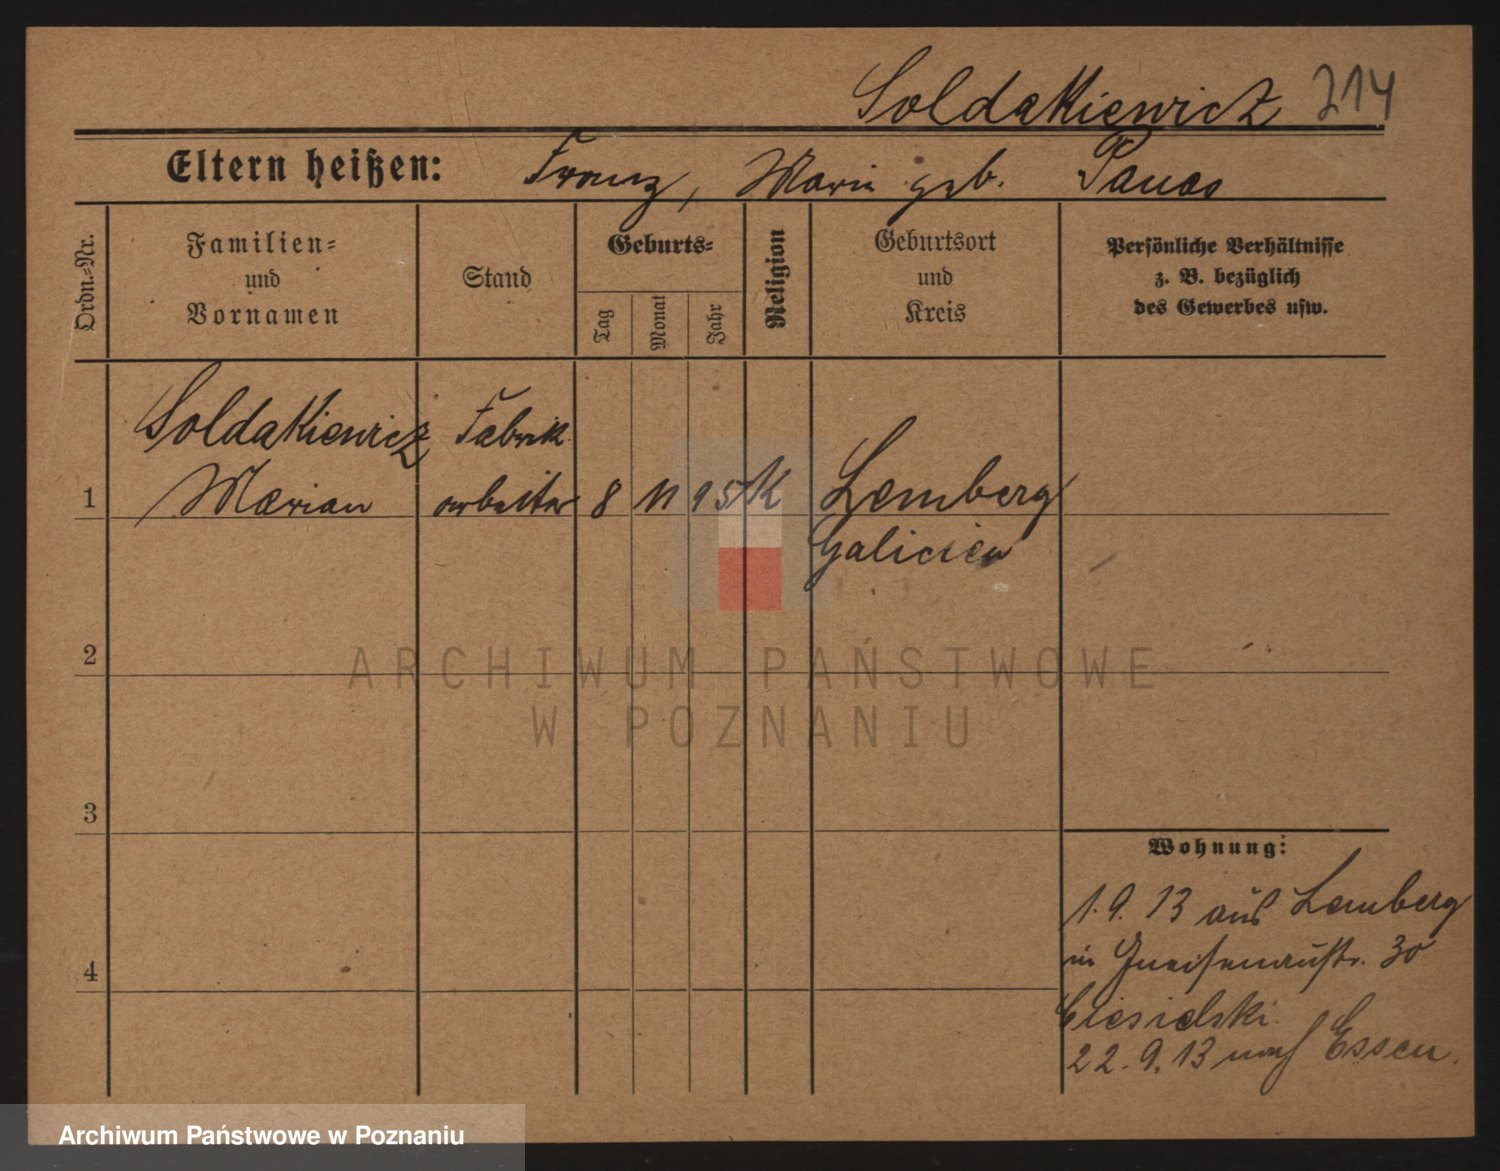 Soldakiewicz 214
Eltern heißen: Franz, Marie geb. Panas
Ordn.=Nr.
Familien=
und
Vornamen
Stand
Geburts=
Tag
Monat
Jahr
Religion
Geburtsort
und
Kreis
Persönliche Verhältnisse
z. B. bezüglich
des Gewerbes usw.
Soldakiewicz Fabrik
1 Marian arbeiter 8 11 95 K Lemberg
Galicien
2
3
4
Wohnung:
1.9.13 aus Lemberg
in Gneisenaustr. 30
Ciesielski
22.9.13 nach Essen.
ARCHIWUM PAŃSTWOWE
W POZNANIU
Archiwum Państwowe w Poznaniu